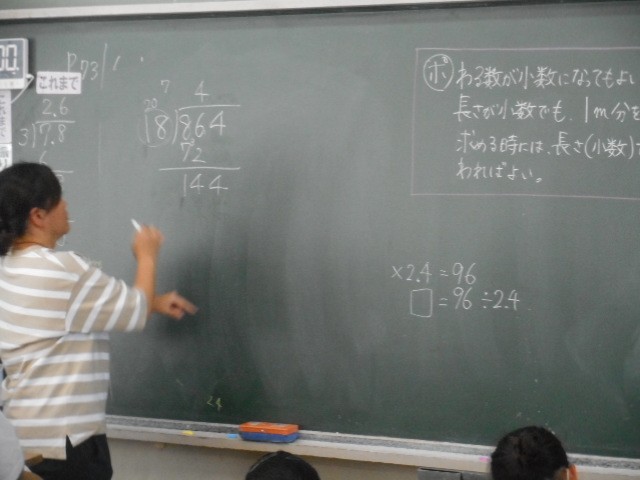 P73
これまで
2.6
3)7.8
6
7 4
20
18)864
72
144
ポ わる数が小数になってもよ
長さが小数でも、1m分を
求める時には、長さ(小数)
わればよい。
×2.4=96
□=96÷2.4